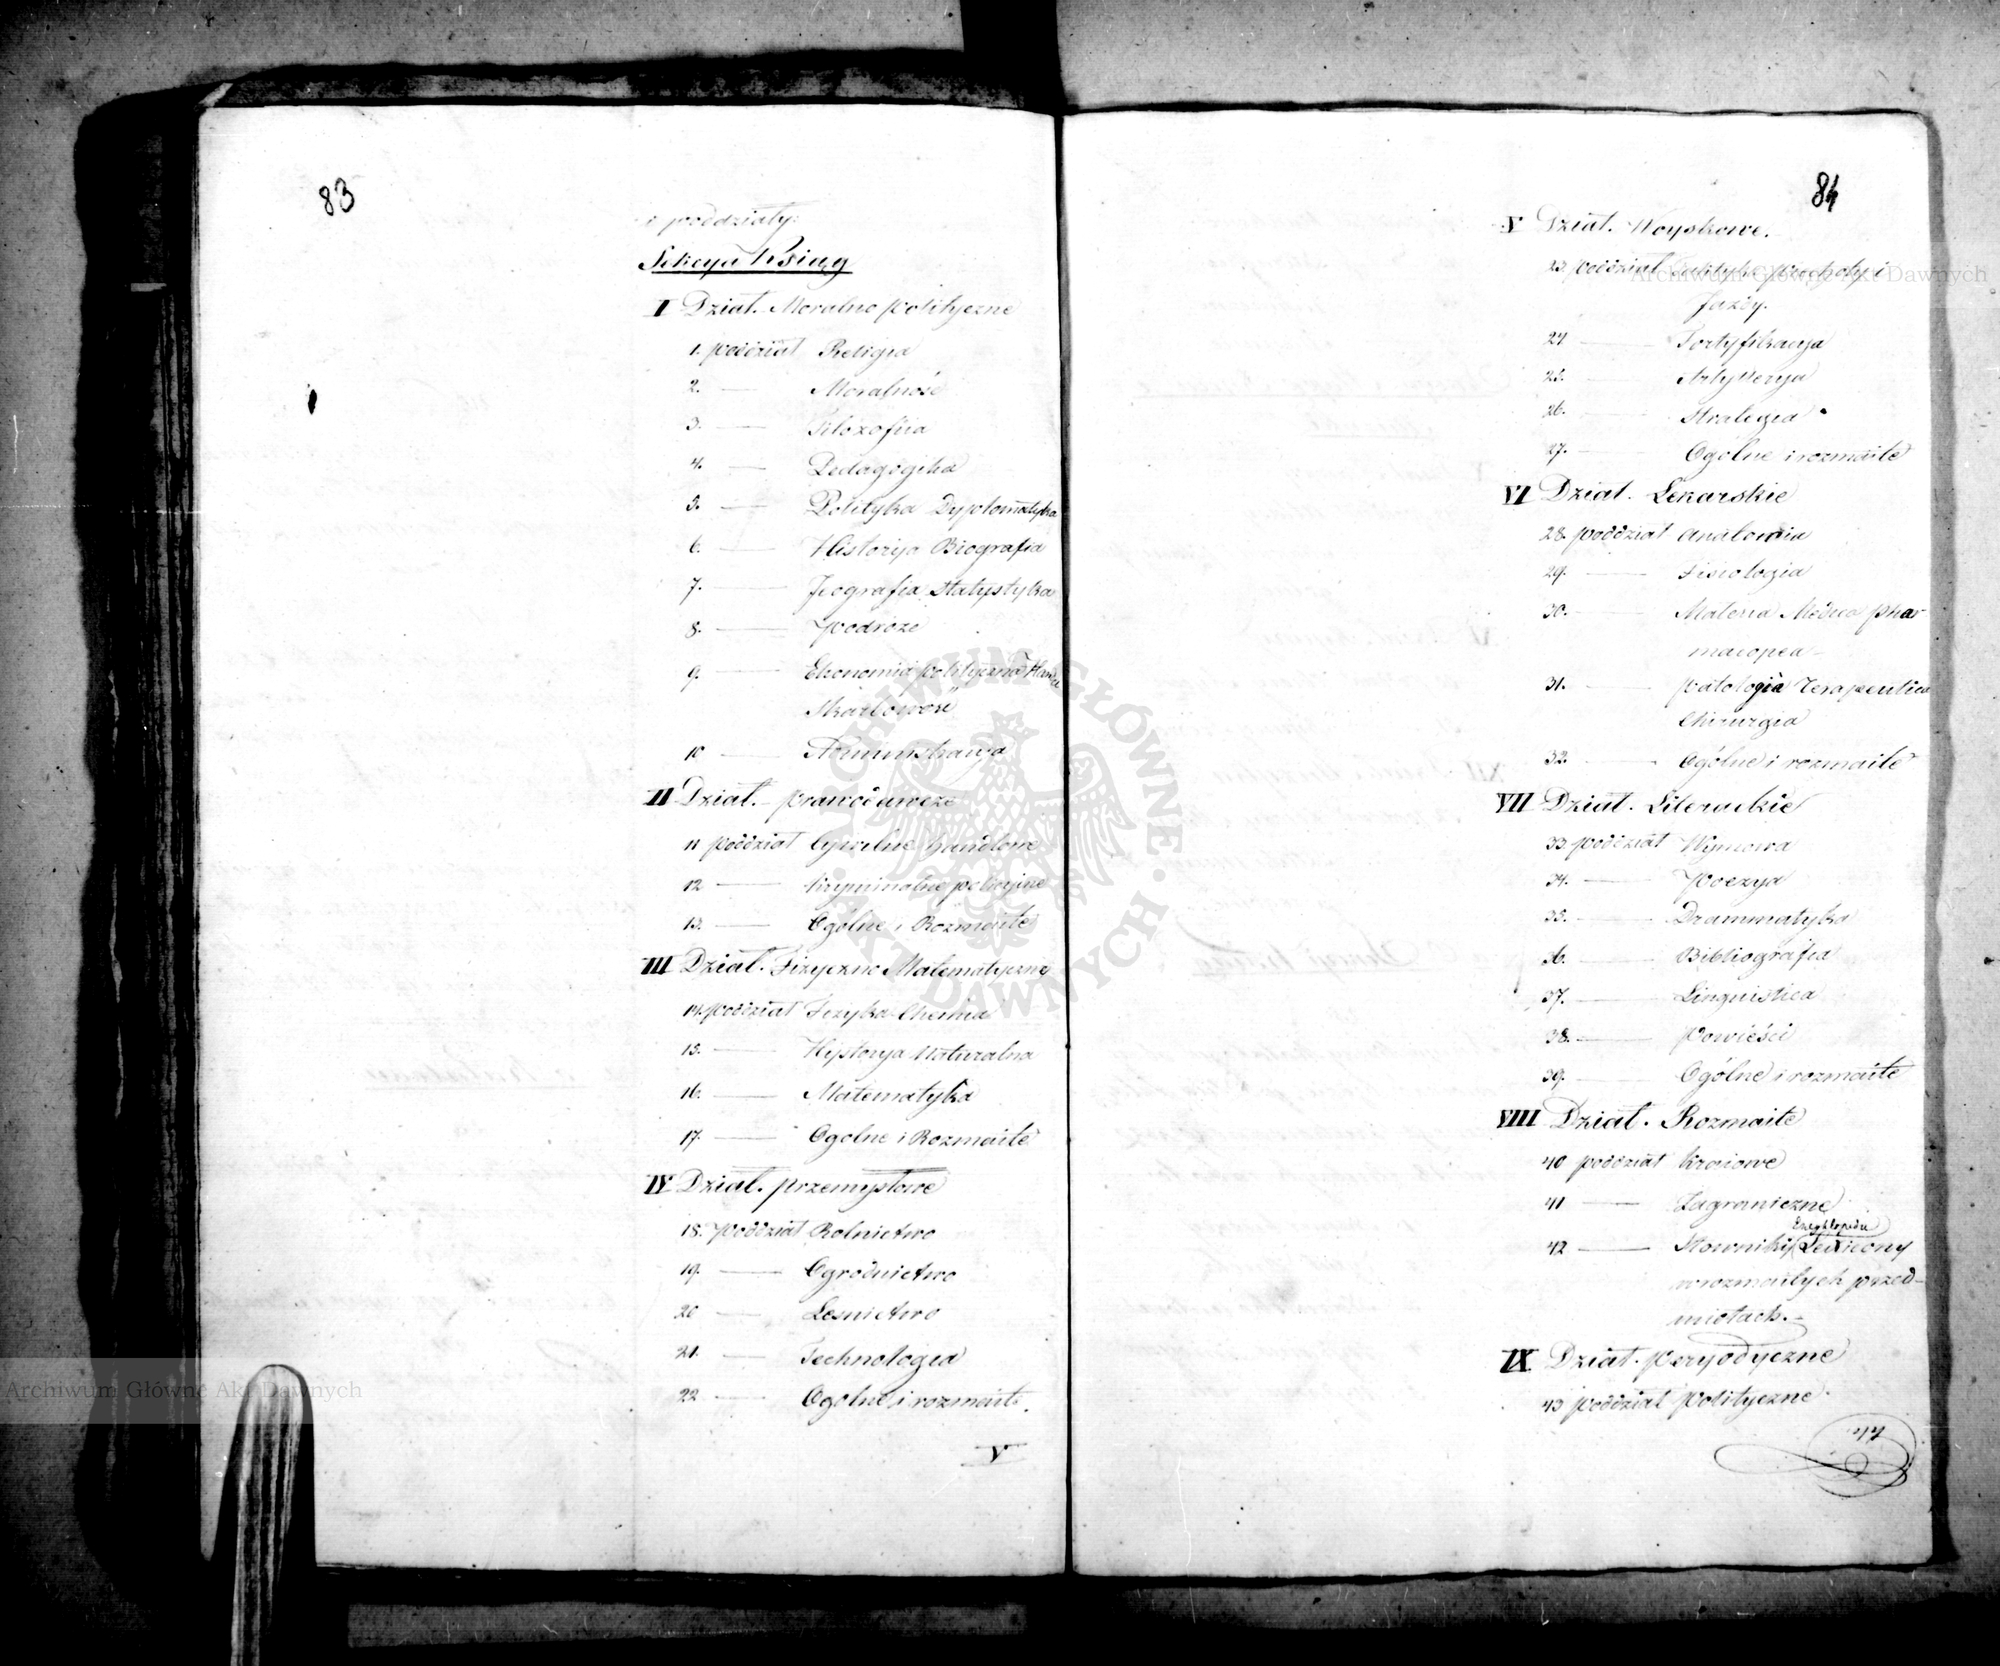 83
i poddziały:
Sekcya Ksiąg
I Dział. Moralno polityczne
1. poddział Religia
2. — Moralność
3. — Filozofiia
4. — Pedagogika
5. — Polityka Dyplomatyka
6. — Historya Biografia
7. — Jeografia Statystyka
8. — Podróże
9. — Ekonomia polityczna Handel
Skarbowość
10 — Administracya
II Dział. prawodawcze
11 poddział Cywilne handlowe
12 — Kryminalne policyjne
13. — Ogólne i Rozmaite
III Dział. Fizyczno Matematyczny
14. poddział Fizyka Chemia
15. — Hystorya Naturalna
16. — Matematyka
17. — Ogolne i Rozmaite
IV Dział. przemysłowe
18. Poddział Rolnictwo
19. — Ogrodnictwo
20 — Lesnictwo
21. — Technologia
22 — Ogólne i rozmait.
V
84
V Dział. Woyskowe.
23. poddział Taktyka Piechoty i
Jazdy.
24 — Fortyfikacya
25. — Artyllerya
26. — Strategia
27. — Ogólne i rozmaite
VI Dział. Lekarskie
28. poddział Anatomia
29. — Fisiologia
30. — Materia Medica phar
macopea
31. — patologia Terapeutica
Chirurgia
32. — Ogólne i rozmaite
VII Dział. Literackie
33. poddział Wymowa
34. — Poezya
35. — Drammatyka
36. — Bibliografia
37. — Linguistica
38. — Powieści
39. — Ogólne i rozmaite
VIII Dział. Rozmaite
40 poddział Kraiowe
41 — Zagraniczne
Encyklopedie
42 — Słowniki Lexicony
w rozmaitych przed-
miotach.
IX Dział. peryodyczne
43 poddział Polityczne.
44.
Archiwum Główne Akt Dawnych
Archiwum Główne Akt Dawnych
ARCHIWUM GŁÓWNE · AKT DAWNYCH ·